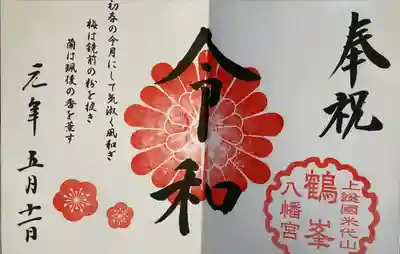 奉祝
上総國米代山
鶴峯
八幡宮
令和
初春の令月にして気淑く風和ぎ
梅は鏡前の粉を披き
蘭は珮後の香を薫す
元年五月十二日